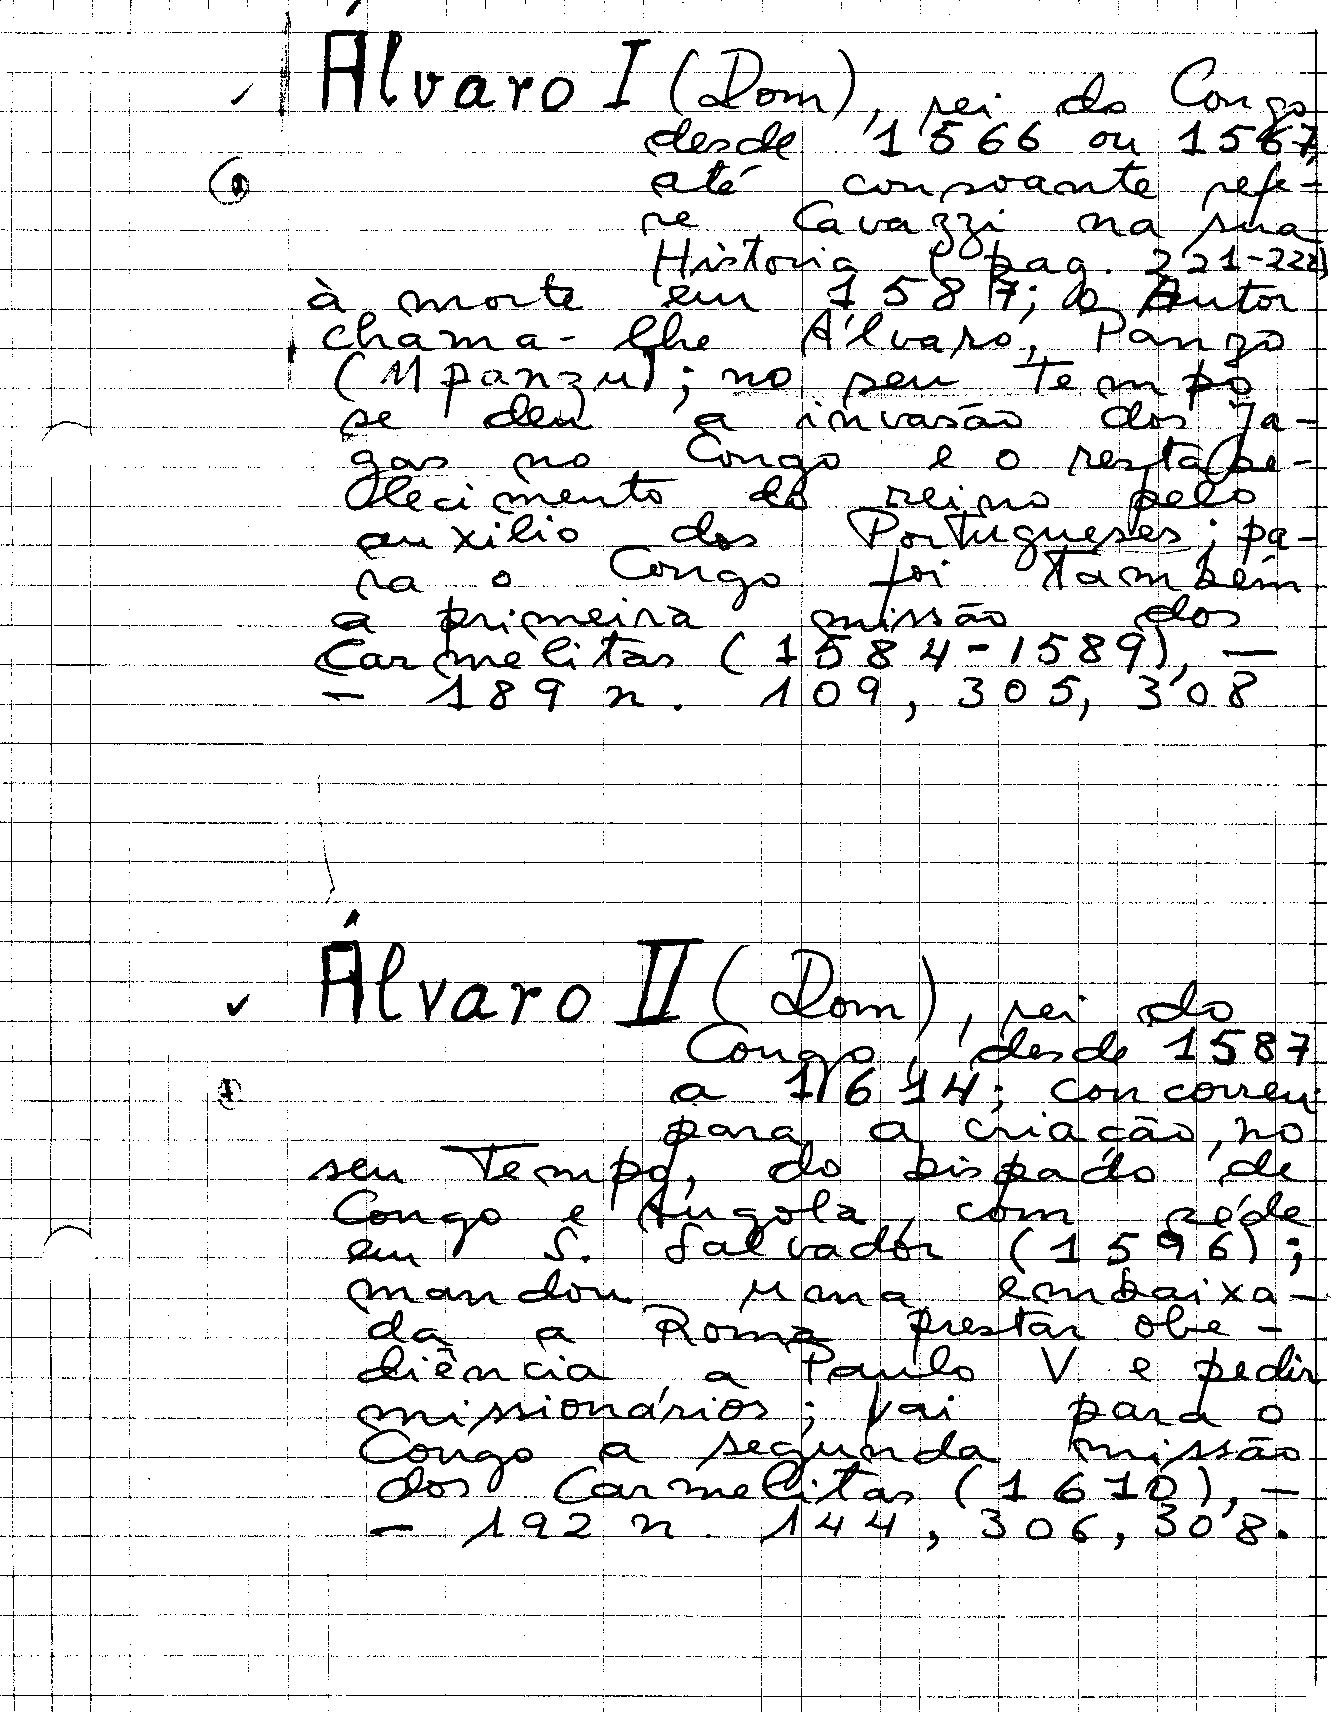 Álvaro I (Dom), rei do Congo
desde 1566 ou 1567
até consoante refe-
re Cavazzi na sua
Historia (pag. 221-222)
à morte em 1587; o Autor
chama-lhe Álvaro Panzo
(Mpanzu); no seu tempo
se deu a invasão dos Ja-
gas no Congo e o restabe-
lecimento do reino pelo
auxilio dos Portugueses; pa-
ra o Congo foi também
a primeira missão dos
Carmelitas (1584-1589), —
— 189 n. 109, 305, 308
Álvaro II (Dom), rei do
Congo, desde 1587
a 1614; concorreu
para a criação, no
seu tempo, do bispado de
Congo e Angola, com séde
em S. Salvador (1596);
mandou uma embaixa-
da a Roma prestar obe-
diência a Paulo V e pedir
missionários; vai para o
Congo a segunda missão
dos Carmelitas (1610), —
— 192 n. 144, 306, 308.